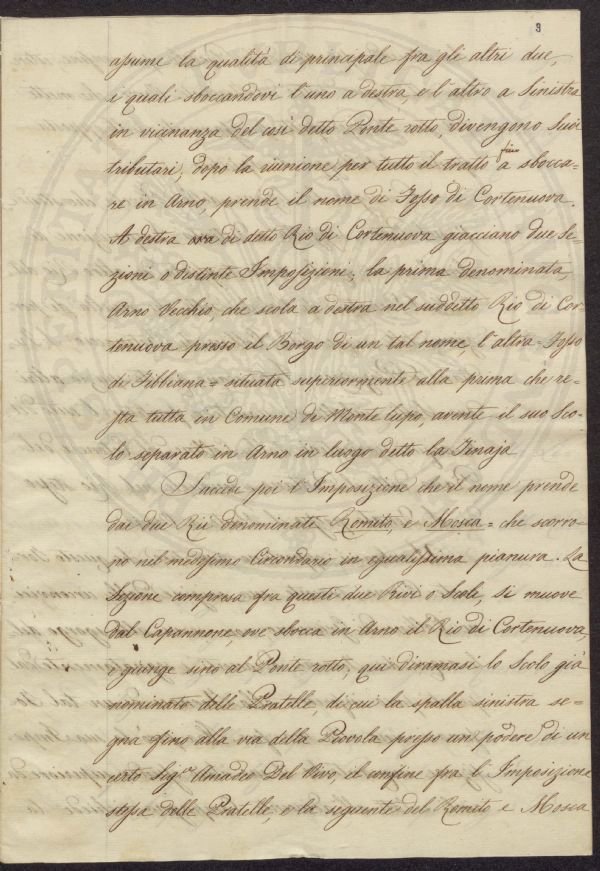 3
assume la qualità di principale fra gli altri due,
i quali sboccandovi l'uno a destra, e l'altro a Sinistra
in vicinanza del così detto Ponte rotto, divengono Suoi
tributari, dopo la riunione per tutto il tratto fino a sbocca=
re in Arno, prende il nome di Fosso di Cortenuova.
A destra ora di detto Rio di Cortenuova giacciano due Se=
zioni o distinte Imposizioni; la prima denominata
Arno Vecchio, che scola a destra nel suddetto Rio di Cor=
tenuova presso il Borgo di un tal nome, l'altra = Fosso
di Fibbiana = situata superiormente alla prima che re=
sta tutta in Comune di Monte lupo, avente il suo Sco=
lo separato in Arno in luogo detto la Tinaja
Succede poi l'Imposizione che il nome prende
dai due Rii denominati Romito, e Mosca = che scorro=
no nel medesimo Circondario in egualissima pianura. La
Sezione compresa fra questi due Rivi o Scoli, si muove
dal Capannone, ove sbocca in Arno il Rio di Cortenuova,
e giunge sino al Ponte rotto, qui diramasi lo Scolo già
nominato delle Pratelle, di cui la spalla sinistra se=
gna fino alla via della Piovola presso un podere di un
certo Sig.r Amadeo Del Vivo, il confine fra l'Imposizione
stessa delle Pratelle, e la seguente del Romito e Mosca